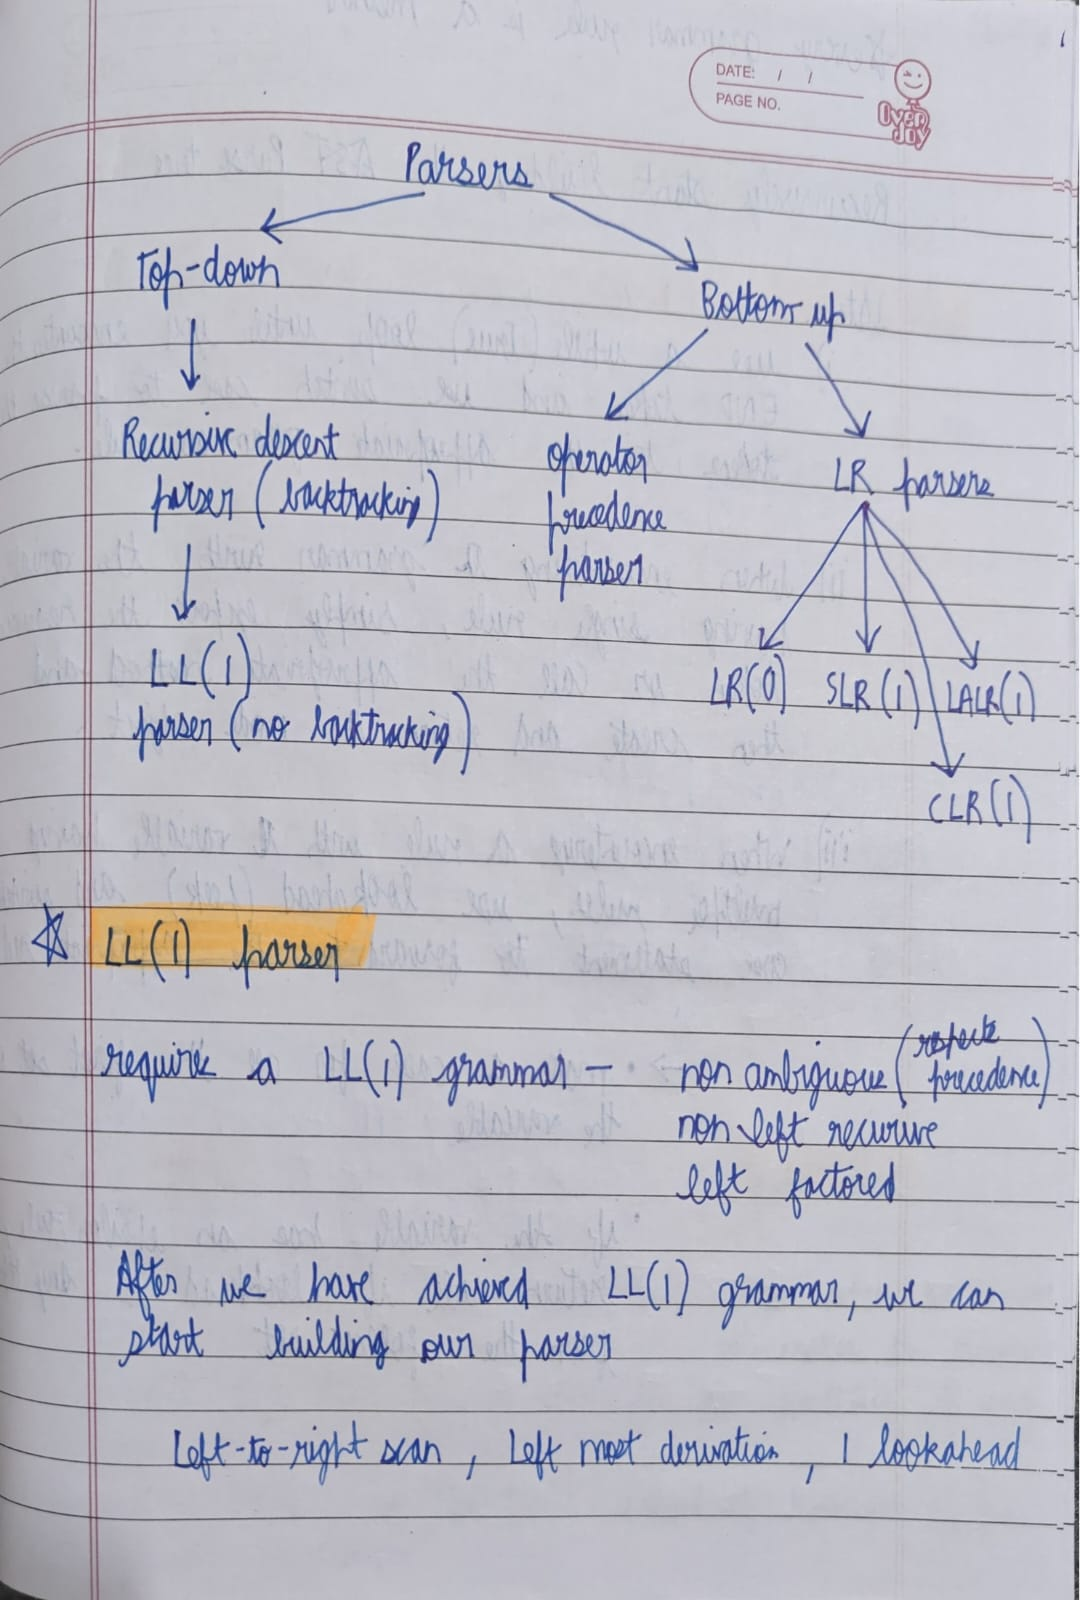 DATE: / /
PAGE NO.
OVER JOY
Parsers
Top-down
Bottom-up
Recursive descent
parser (backtracking)
operator
precedence
parser
LR parsers
LL(1)
parser (no backtracking)
LR(0) SLR(1) LALR(1)
CLR(1)
LL(1) parser
requires a LL(1) grammar — non ambiguous (respects precedence)
non left recursive
left factored
After we have achieved LL(1) grammar, we can
start building our parser
Left-to-right scan, Left most derivation, 1 lookahead